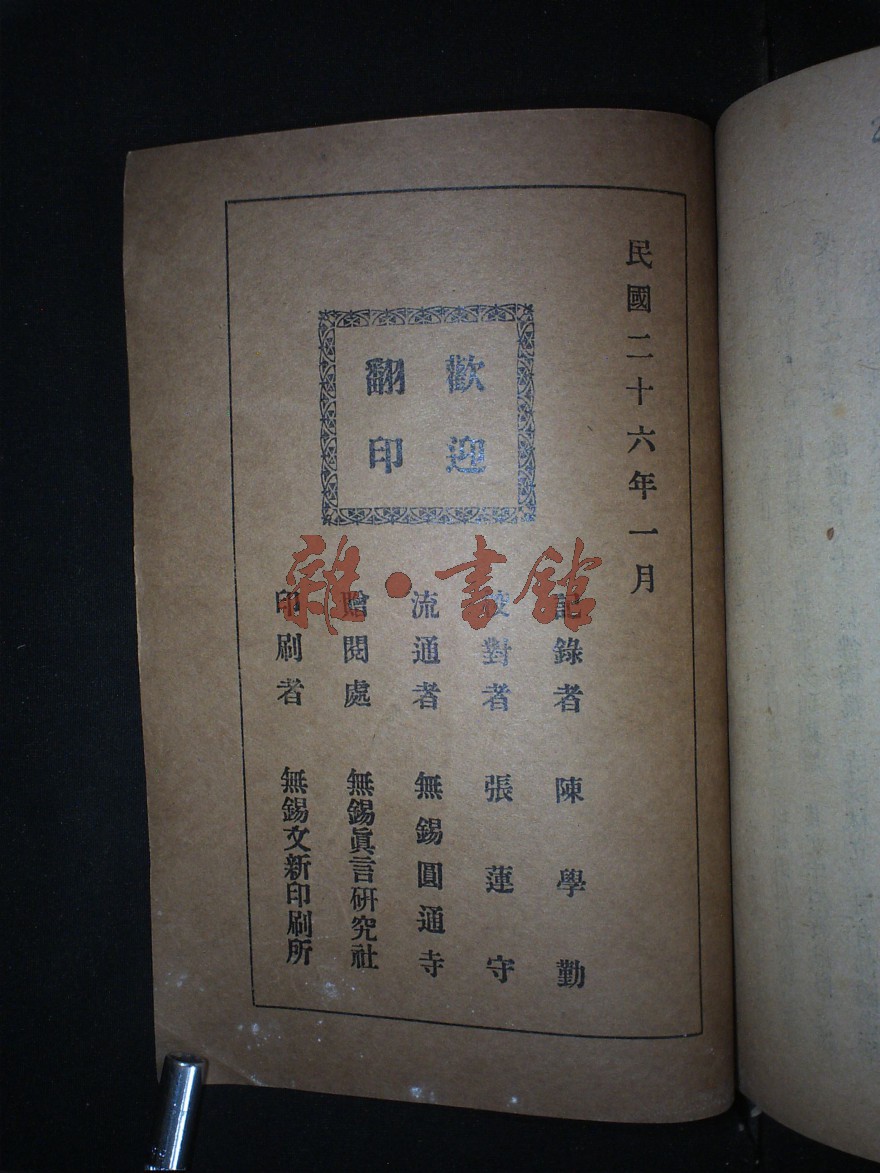 民國二十六年一月
歡迎
翻印
記錄者 陳學勤
校對者 張蓮守
流通者 無錫圓通寺
贈閱處 無錫眞言研究社
印刷者 無錫文新印刷所
雜·書館
2